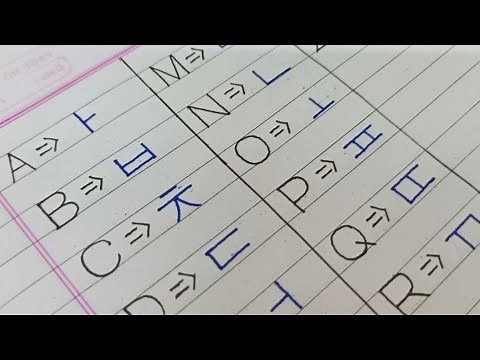 A ⇒ ㅏ
B ⇒ ㅂ
C ⇒ ㅊ
D ⇒ ㄷ
ㅓ
M ⇒
N ⇒ ㄴ
O ⇒ ㅗ
P ⇒ ㅍ
Q ⇒
R ⇒